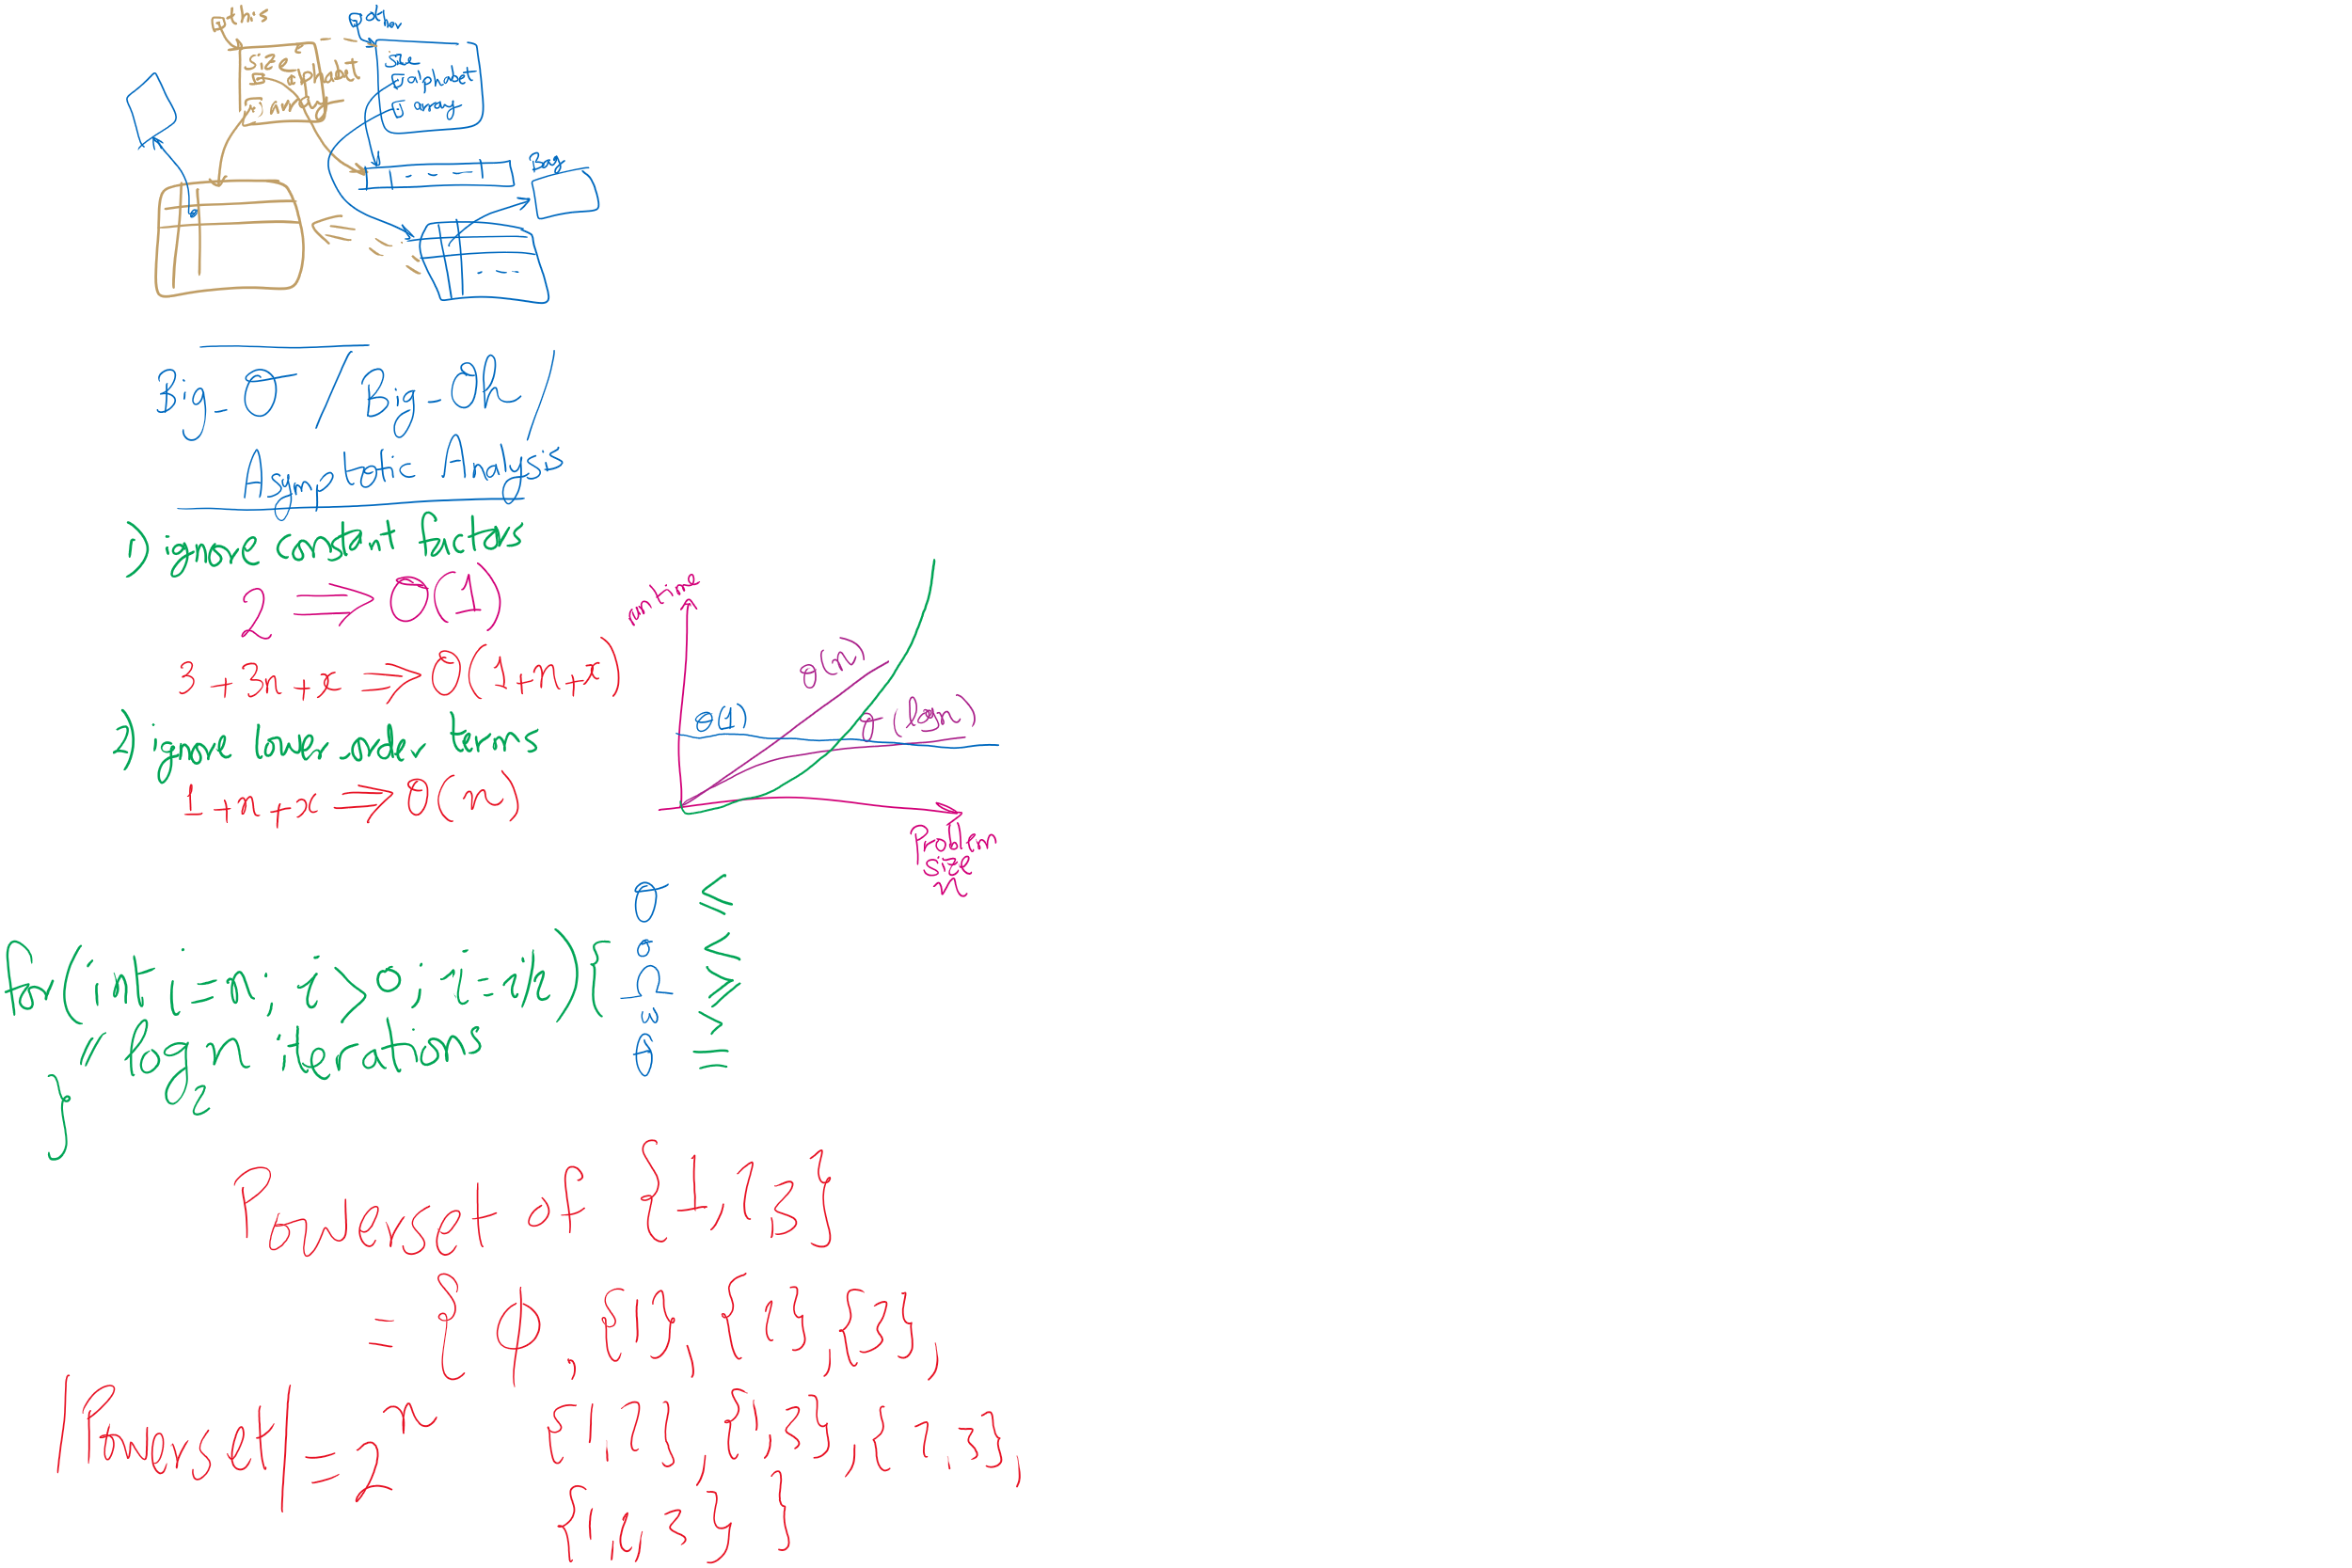 this
other
size
alphabet
array
size
alphabet
array
Bag
Big-O / Big-Oh /
Asymptotic Analysis
1) ignore constant factors
2 ⇒ O(1)
3+3n+x ⇒ O(1+n+x)
2) ignore lower-order terms
1+n+x ⇒ O(n)
runtime
O(n)
O(1)
O(log n)
Problem
size
n
O ≤
o <
Ω ≥
ω >
θ =
for(int i=n; i>0; i=i/2){
// log₂n iterations
}
Powerset of {1,2,3}
= { ϕ, {1}, {2}, {3},
{1,2}, {1,3}, {2,3},
{1,2,3} }
|Powerset| = 2ⁿ